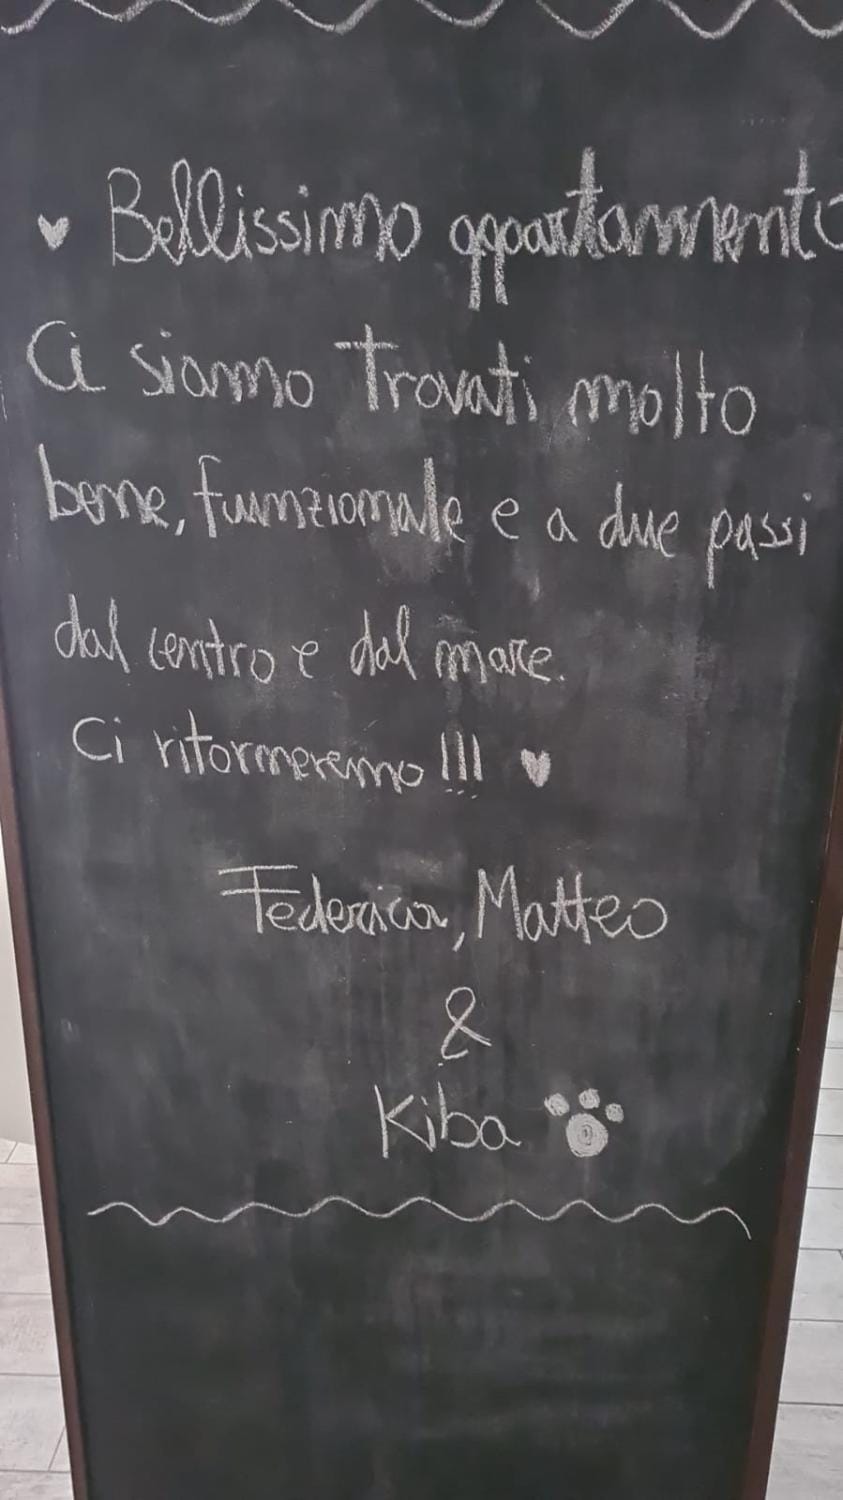 ♥ Bellissimo appartamento
Ci siamo trovati molto
bene, funzionale e a due passi
dal centro e dal mare.
Ci ritorneremo!!! ♥
Federica, Matteo
&
Kiba